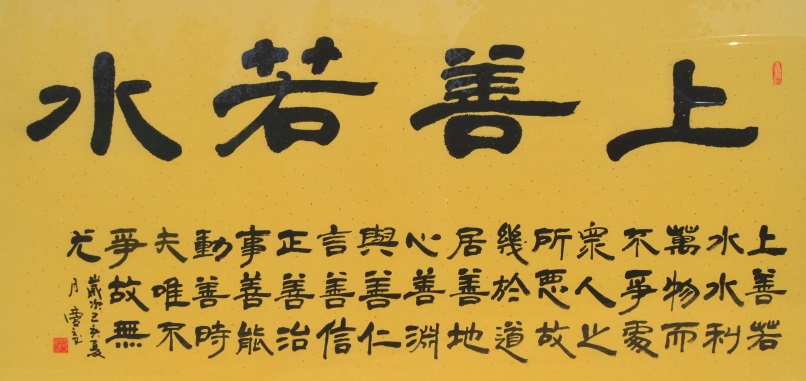 上善若水
上善若
水水利
萬物而
不爭處
衆人之
所悪故
幾於道
居善地
心善淵
與善仁
言善信
正善治
事善能
動善時
夫唯不
爭故無
尤
歲次己亥夏
月